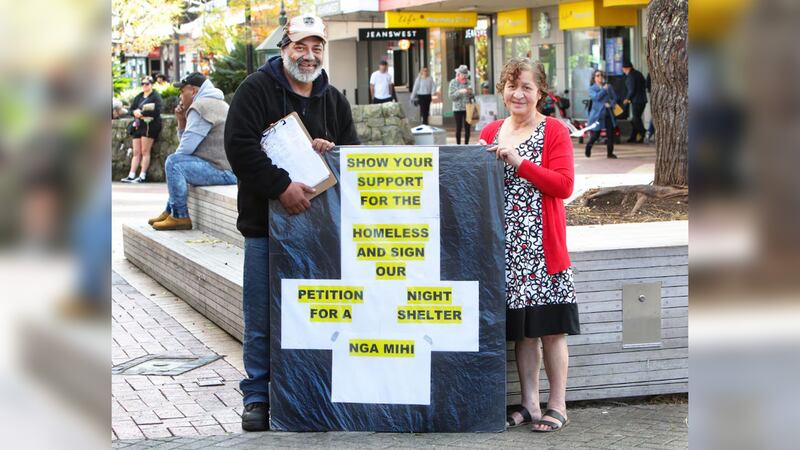 JEANSWEST
SHOW YOUR
SUPPORT
FOR THE
HOMELESS
AND SIGN
OUR
PETITION
FOR A
NIGHT
SHELTER
NGA MIHI